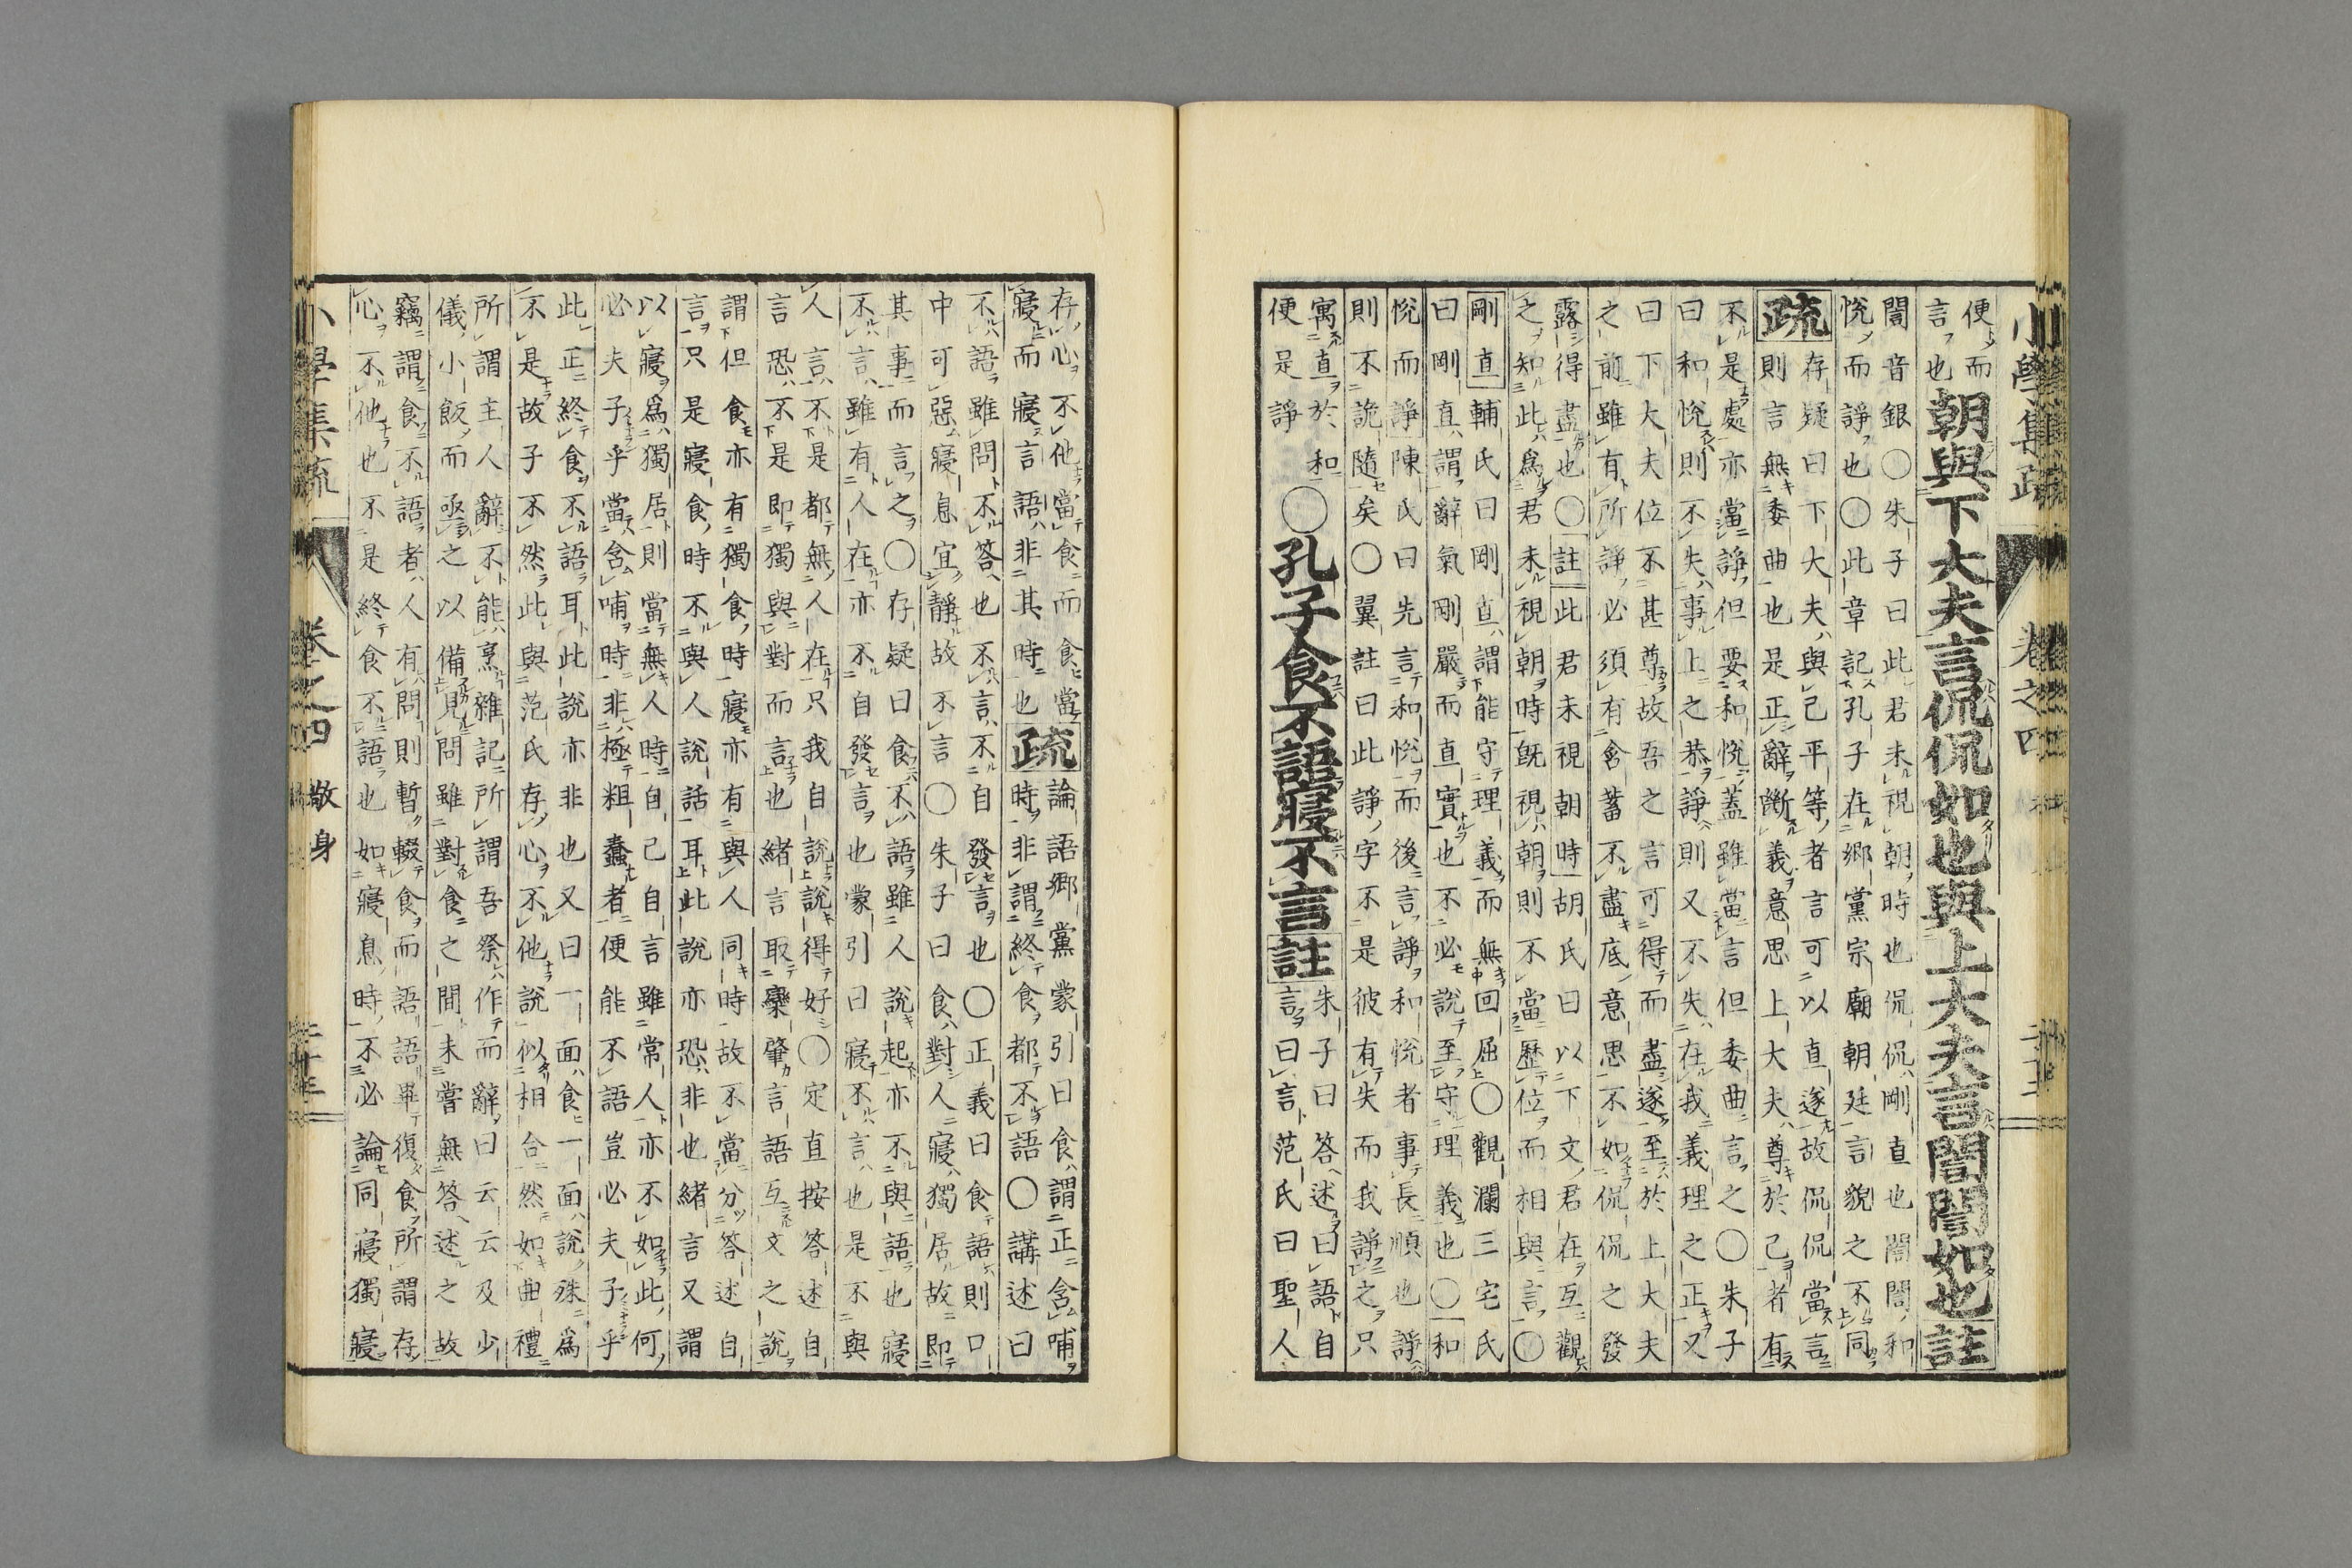 小學集疏 卷之四
便而
言也
朝與下大夫言侃侃如也與上大夫言誾誾如也 註
誾音銀〇朱子曰此君未視朝時也侃侃剛直也誾誾和
悅而諍也〇此章記孔子在鄉黨宗廟朝廷言貌之不同
疏 存疑曰下大夫與己平等者言可以直遂故侃侃當言
則言無委曲也是正辭斷義意思上大夫尊於己者有
不是處亦當諍但要和悅蓋雖當言但委曲言之〇朱子
曰和悅則不失事上之恭諍則又不失在我義理之正又
曰下大夫位不甚尊故吾之言可得而盡遂至於上大夫
之前雖有所諍必須有含蓄不盡底意思不如侃侃之發
露得盡也〇註此君未視朝時胡氏曰以下文君在互觀
之知此為君未視朝時旣視朝則不當歷位而相與言〇
剛直輔氏曰剛直謂能守理義而無回屈〇觀瀾三宅氏
曰剛直謂辭氣剛嚴而直實也不必說至守理義也〇和
悅而諍陳氏曰先言和悅而後言諍和悅者事長順也諍
則不詭隨矣〇翼註曰此諍字不是彼有失而我諍之只
寓直於和
便是諍
〇孔子食不語寢不言 註
朱子曰答述曰語自
言曰言范氏曰聖人
存心不他當食而食當
寢而寢言語非其時也
疏
論語鄉黨蒙引曰食謂正含哺
時非謂終食都不語〇講述曰
不語雖問不答也不言不自發言也〇正義曰食語則口
中可惡寢息宜靜故不言〇朱子曰食對人寢獨居故即
其事而言之〇存疑曰食不語雖人說起亦不與語也寢
不言雖有人在亦不自發言也蒙引曰寢不言也是不與
人言不是都無人在只我自說說得好〇定直按答述自
言恐不是即獨與對而言也緒言取稾肇言語互文之說
謂但食亦有獨食時寢亦有與人同時故不當分答述自
言只是寢食時不與人說話耳此說亦恐非也緒言又謂
以寢爲獨居則當無人時自己自言雖常人亦不如此何
必夫子乎當含哺時非極粗蠢者便能不語豈必夫子乎
此正終食不語耳此說亦非也又曰一面食一面說殊爲
不是故子不然此與范氏存心不他說似相合然如曲禮
所謂主人辭不能烹雜記所謂吾祭作而辭曰云云及少
儀小飯而亟之以備見問雖對食之間未嘗無答述之故
竊謂食不語者人有問則暫輟食而語語畢復食所謂存
心不他也不是終食不語也如寢息時不必論同寢獨寢
小學集疏 卷之四 敬身 二十三